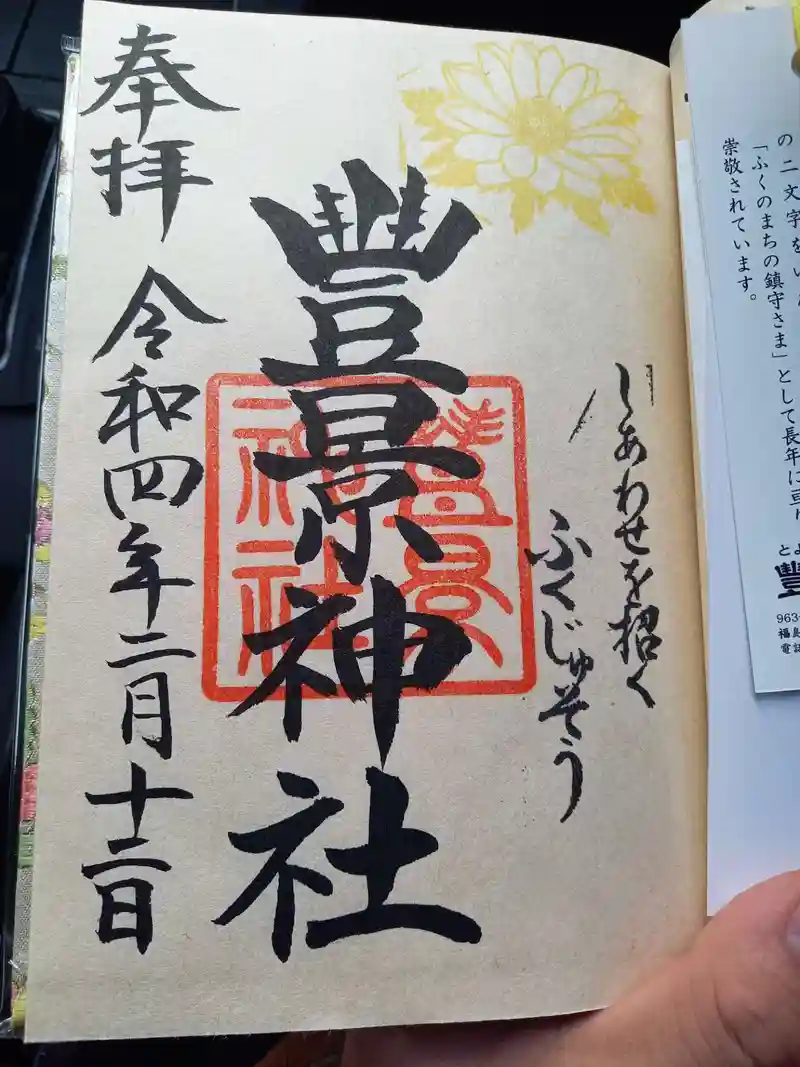 の二文字をい
「ふくのまちの鎮守さま」として長年に亘り
崇敬されています。
とよ
豐
963-
福島
電話
しあわせを招く
ふくじゅそう
豐景神社
豐景
神社
奉拝 令和四年二月十二日